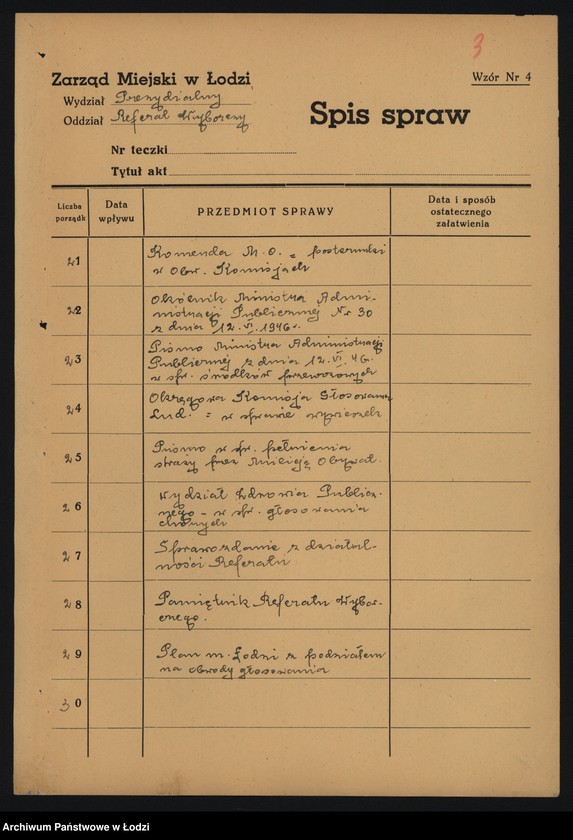 3
Zarząd Miejski w Łodzi
Wzór Nr 4
Wydział Prezydialny
Oddział Referat Wyborczy
Spis spraw
Nr teczki
Tytuł akt
Liczba porządk
Data wpływu
PRZEDMIOT SPRAWY
Data i sposób ostatecznego załatwienia
21 Komenda M.O. = posterunki
w Obw. Komisjach
22 Okólnik Ministra Admi-
nistracji Publicznej Nr 30
z dnia 12.VI.1946r.
23 Pismo Ministra Administracji
Publicznej z dnia 12.VI.46.
w spr. środków przewozowych
24 Okręgowa Komisja Głosowania
Lud. = w sprawie
25 Pismo w spr. pełnienia
straży przez Milicję Obywat.
26 Wydział Zdrowia Publicz-
nego – w spr. głosowania
chorych
27 Sprawozdanie z działal-
ności Referatu
28 Pamiętnik Referatu Wybor-
czego.
29 Plan m. Łodzi z podziałem
na obwody głosowania
30
Archiwum Państwowe w Łodzi